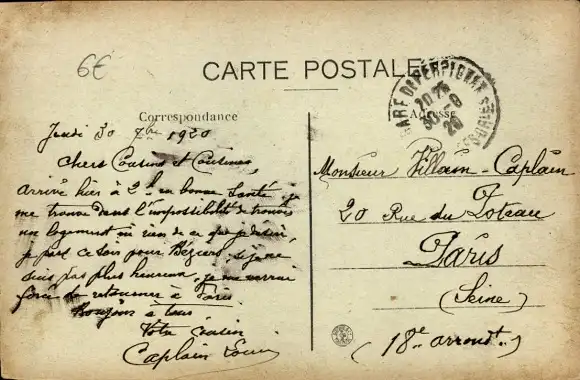 6€
CARTE POSTALE
Correspondance
Adresse
GARE DE PERPIGNAN
20 25
30 - 9
20
Jeudi 30 7bre 1920
Chers Cousins et Cousines,
Arrivé hier à 2h en bonne santé, je
me trouve dans l'impossibilité de trouver
un logement ni rien de ce que je désire,
je pars ce soir pour Béziers, si je ne
suis pas plus heureux, je me verrai
forcé de retourner à Paris
Bonjour à tous
Votre cousin
Caplain Louis
Monsieur Villain-Caplain
20 Rue du Poteau
Paris
(Seine)
(18e arrondt.)